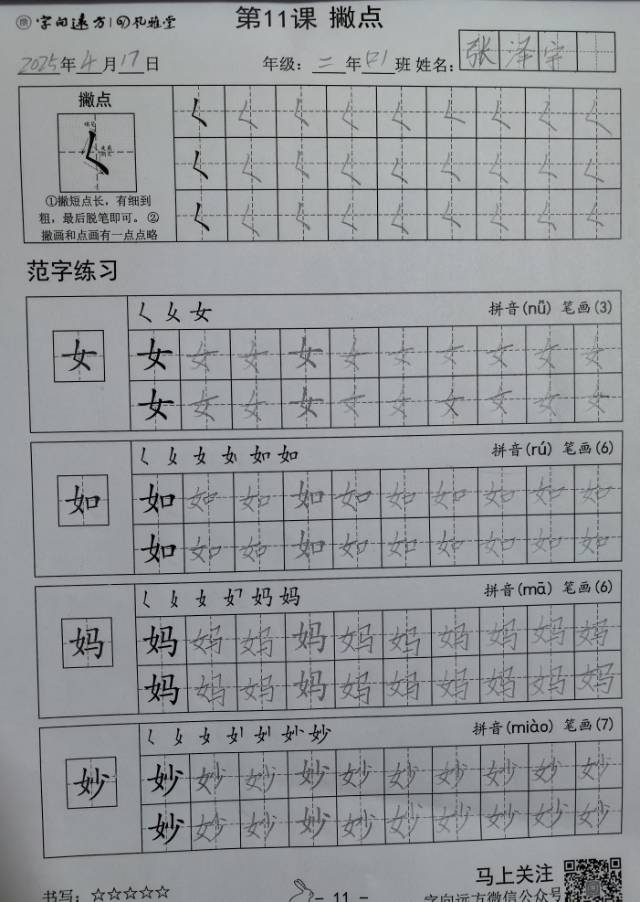 字向远方 | 凤雅堂
第11课 撇点
2025年4月17日 年级：二年四班 姓名：张泽宇
撇点
①撇短点长，有细到
粗，最后脱笔即可。②
撇画和点画有一点点略
范字练习
拼音(nǚ) 笔画(3)
女 女 女 女 女 女 女 女 女 女 女
女 女 女 女 女 女 女 女 女 女
拼音(rú) 笔画(6)
如 如 如 如 如 如 如 如 如 如 如
如 如 如 如 如 如 如 如 如 如
拼音(mā) 笔画(6)
妈 妈 妈 妈 妈 妈 妈 妈 妈 妈 妈
妈 妈 妈 妈 妈 妈 妈 妈 妈 妈
拼音(miào) 笔画(7)
妙 妙 妙 妙 妙 妙 妙 妙 妙 妙 妙
妙 妙 妙 妙 妙 妙 妙 妙 妙 妙
马上关注
书写：☆☆☆☆☆ - 11 - 字向远方微信公众号